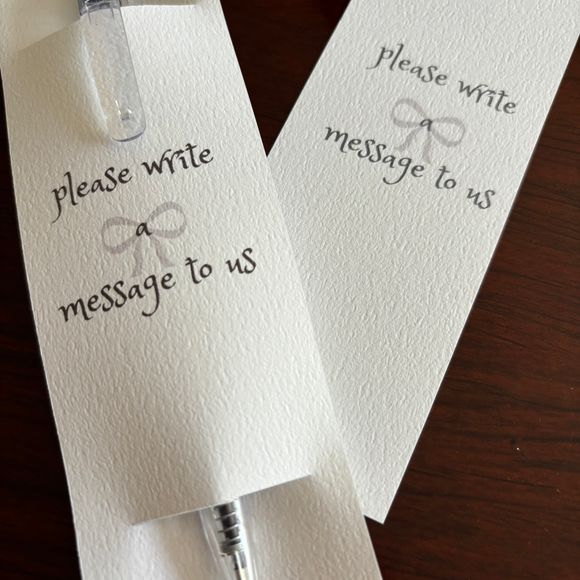 please write
a
message to us
please write
a
message to us